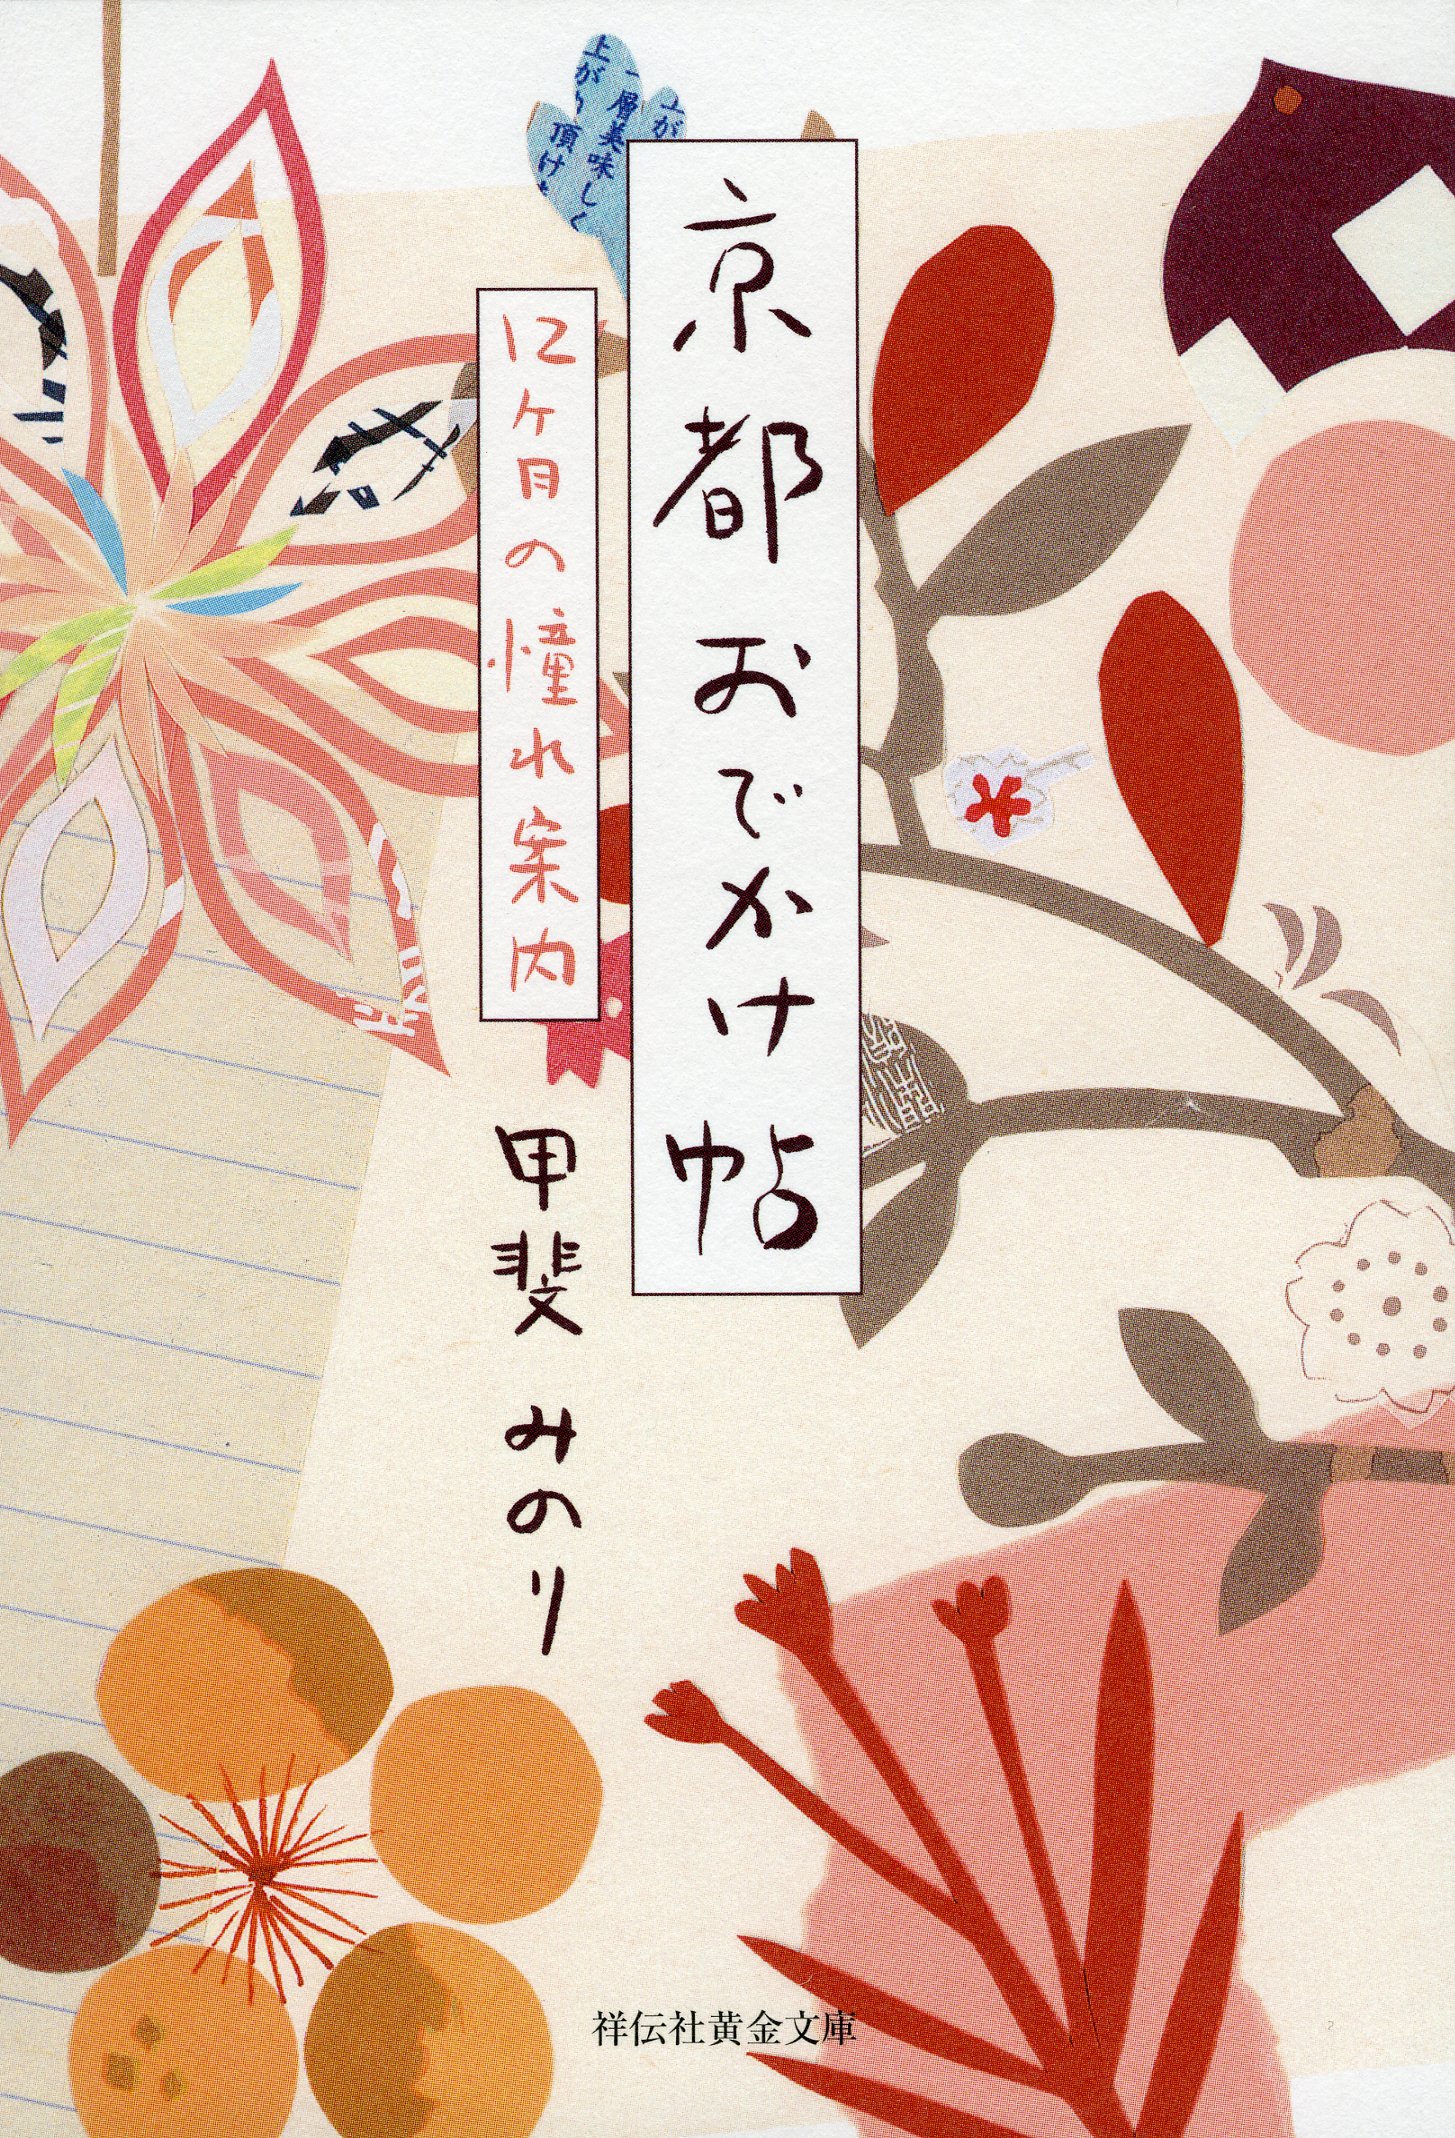 京都おでかけ帖
12ヶ月の憧れ案内
甲斐みのり
祥伝社黄金文庫
上が
一層美味しく
上がり
頂け